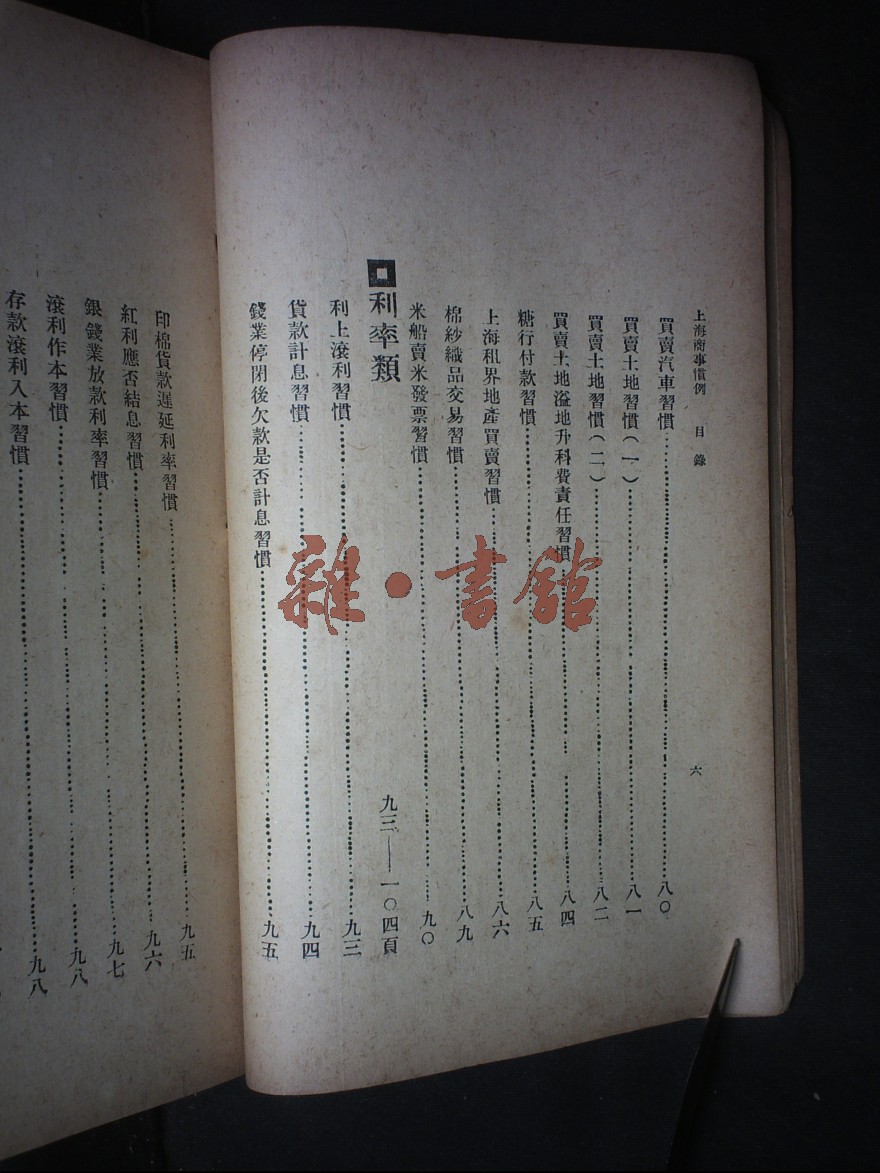 上海商事慣例　目錄　六
買賣汽車習慣……八〇
買賣土地習慣（一）……八一
買賣土地習慣（二）……八二
買賣土地溢地升科費責任習慣……八四
糖行付款習慣……八五
上海租界地產買賣習慣……八六
棉紗織品交易習慣……八九
米船賣米發票習慣……九〇
利率類　九三——一〇四頁
利上滾利習慣……九三
貨款計息習慣……九四
錢業停閉後欠款是否計息習慣……九五
印棉貨款遲延利率習慣……九五
紅利應否結息習慣……九六
銀錢業放款利率習慣……九七
滾利作本習慣……九八
存款滾利入本習慣……九八
雜·書館